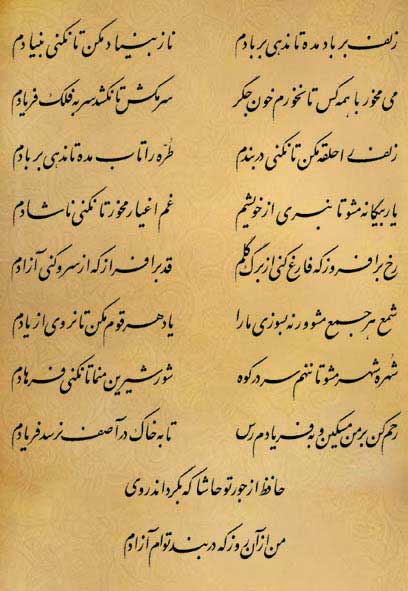 زلف بر باد مده تا ندهی بر بادم ناز بنیاد مکن تا نکنی بنیادم
می مخور با همه کس تا نخورم خون جگر سر مکش تا نکشد سر به فلک فریادم
زلف را حلقه مکن تا نکنی در بندم طره را تاب مده تا ندهی بر بادم
یار بیگانه مشو تا نبری از خویشم غم اغیار مخور تا نکنی ناشادم
رخ برافروز که فارغ کنی از برگ گلم قد برافراز که از سرو کنی آزادم
شمع هر جمع مشو ورنه بسوزی ما را یاد هر قوم مکن تا نروی از یادم
شهره شهر مشو تا ننهم سر در کوه شور شیرین منما تا نکنی فرهادم
رحم کن بر من مسکین و به فریادم رس تا به خاک در آصف نرسد فریادم
حافظ از جور تو حاشا که بگرداند روی
من از آن روز که در بند توام آزادم